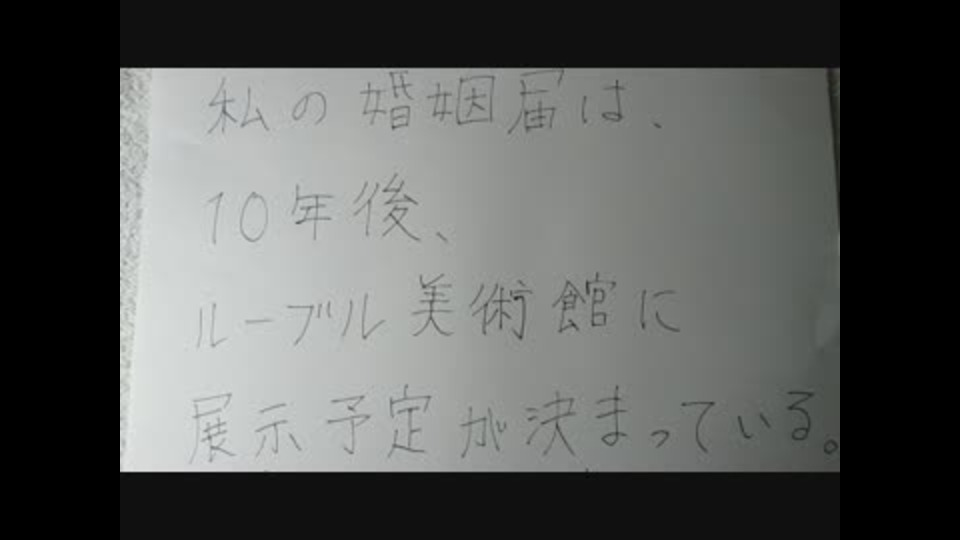 私の婚姻届は、
10年後、
ルーブル美術館に
展示予定が決まっている。